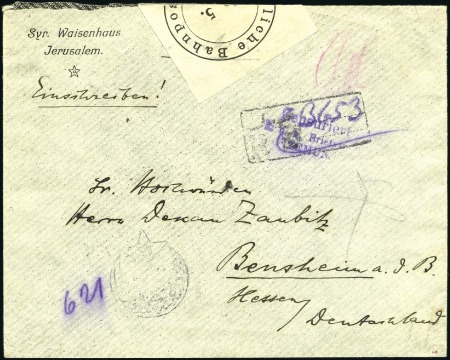 5.
liche Bahnpos
Syr. Waisenhaus
Jerusalem.
Einschreiben!
B453
Zensuriert
Brief
Sr. Hochwürden
Herrn Dekan Zaubitz
621
Bensheim a. d. B.
Hessen
Deutschland